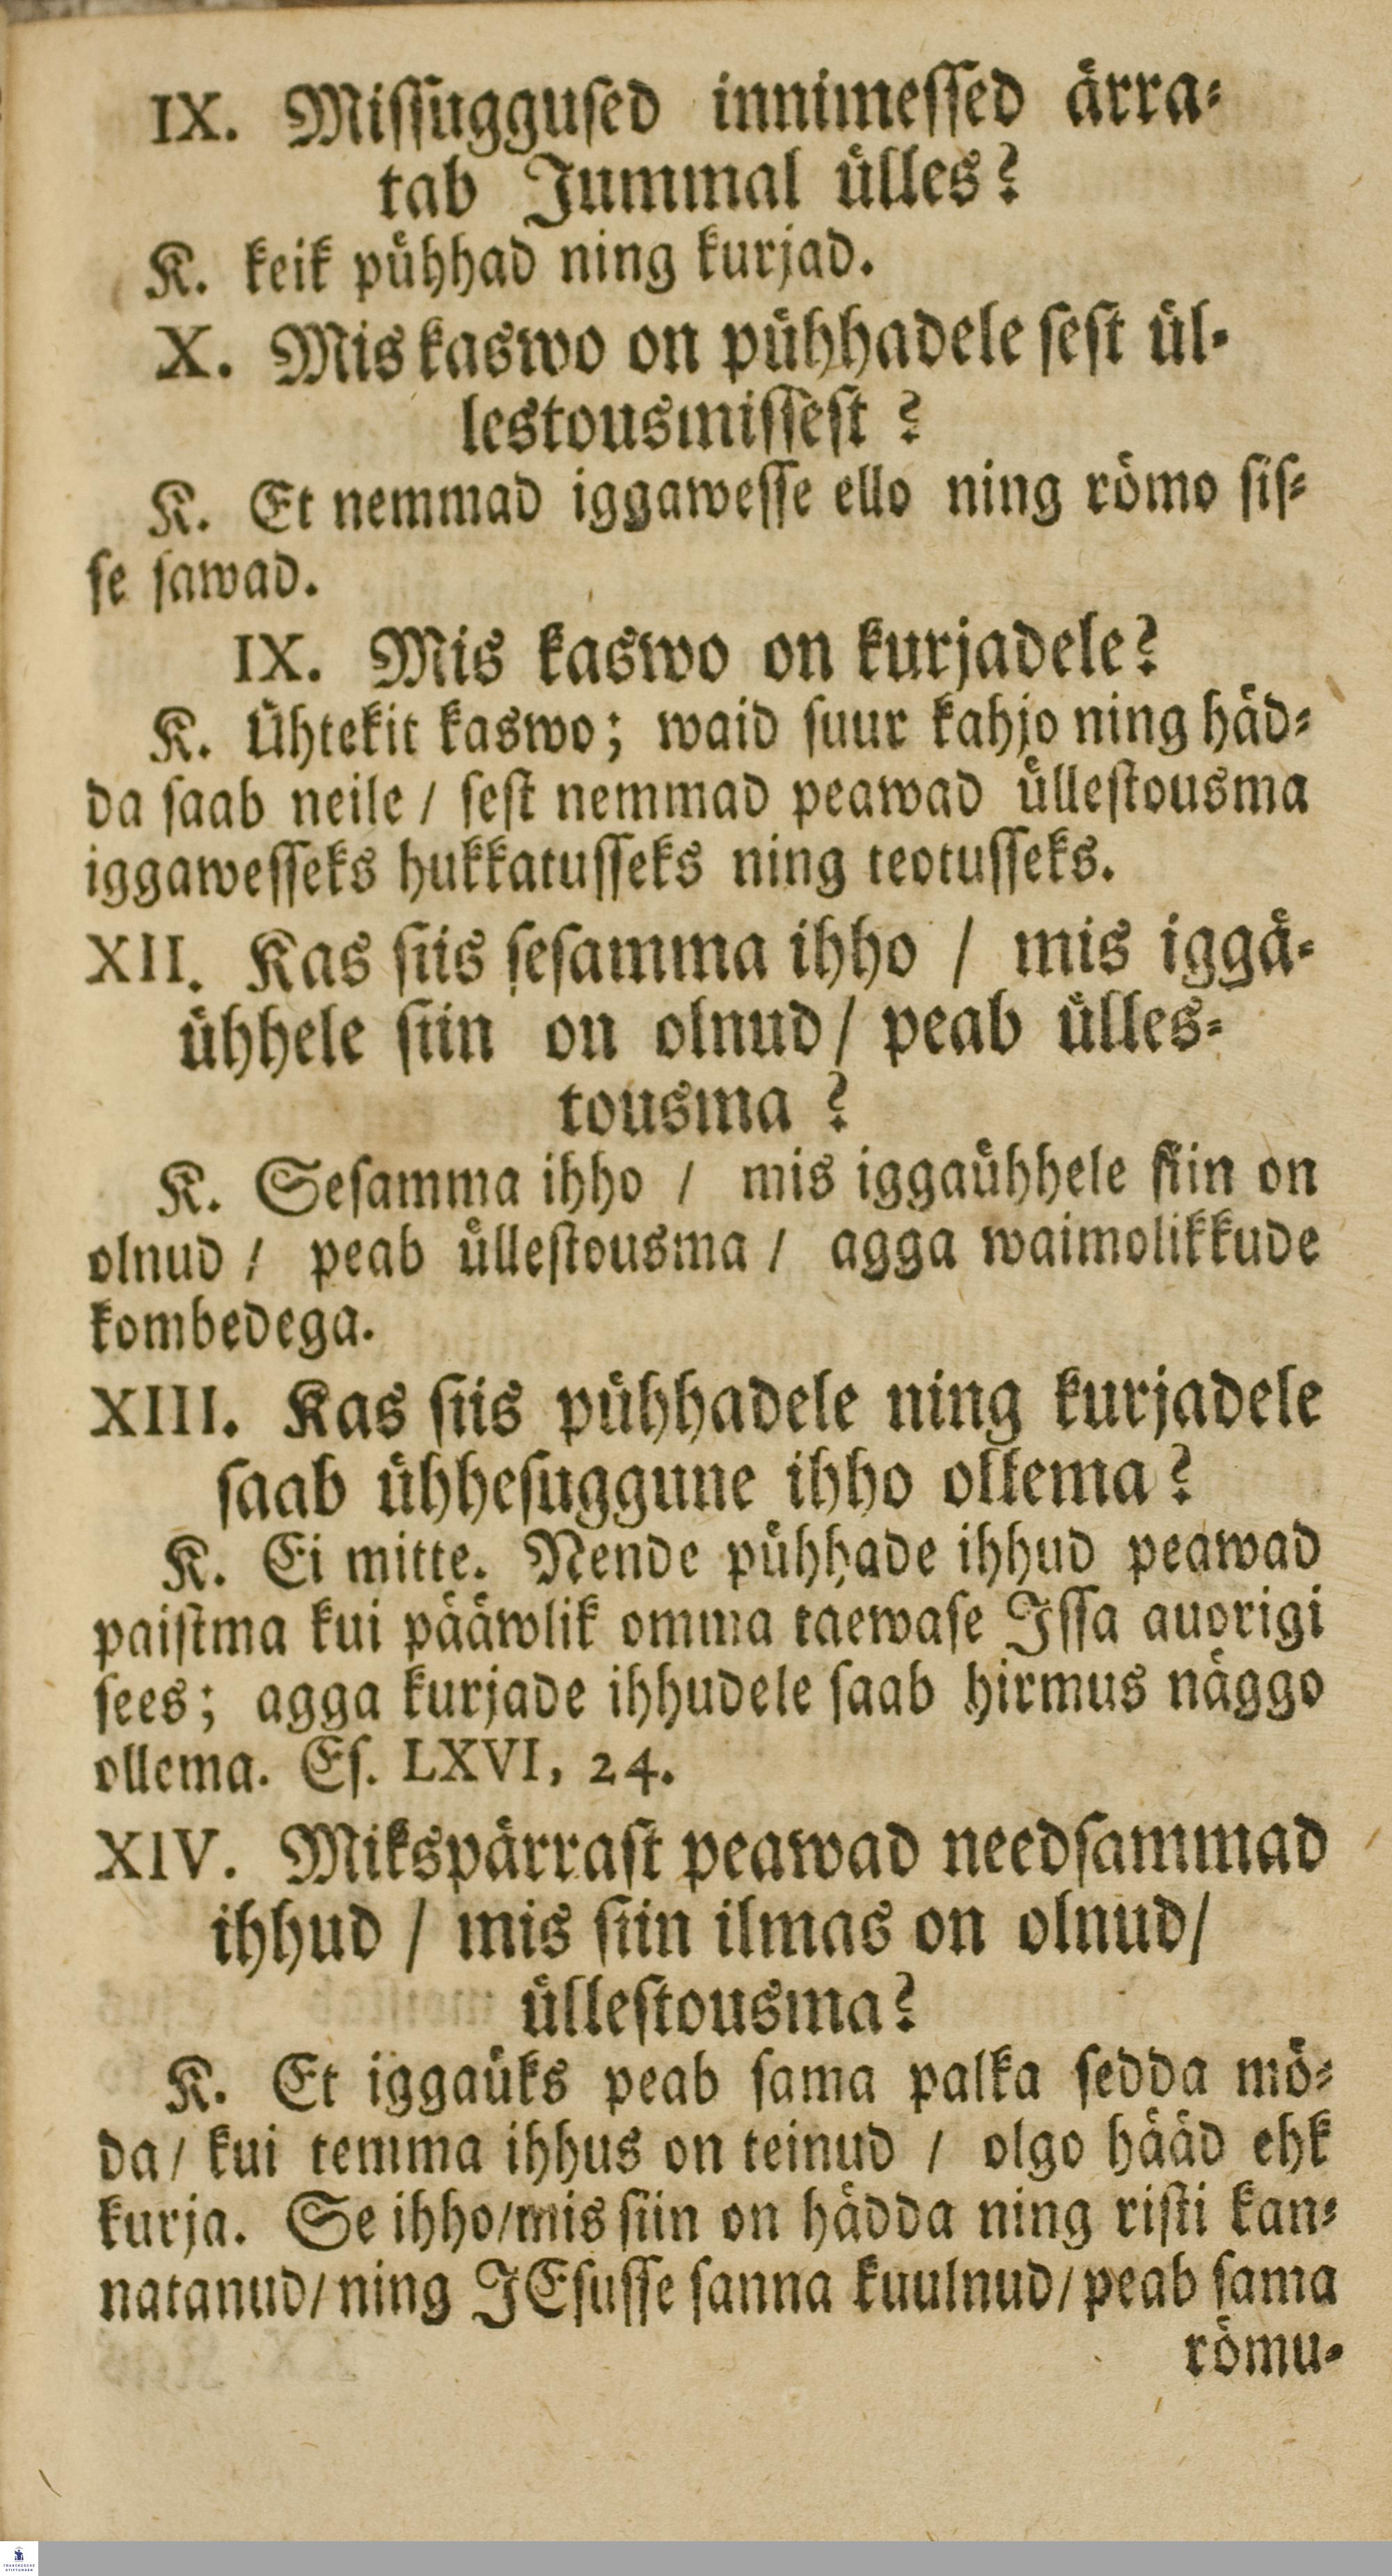 IX. Miſſugguſed innimeſſed ärra⸗
tab Jummal ülles?
K. keik pühhad ning kurjad.
X. Mis kaswo on pühhadele ſeſt ül⸗
lestousmiſſeſt ?
K. Et nemmad iggaweſſe ello ning römo ſiſ⸗
ſe ſawad.
IX. Mis kaswo on kurjadele?
K. Ühtekit kaswo; waid ſuur kahjo ning häd⸗
da ſaab neile / ſeſt nemmad peawad ülleſtousma
iggaweſſeks hukkatuſſeks ning teotuſſeks.
XII. Kas ſiis ſeſamma ihho / mis iggä⸗
ühhele ſiin on olnud / peab ülles⸗
tousma ?
K. Seſamma ihho / mis iggaühhele ſiin on
olnud / peab ülleſtousma / agga waimolikkude
kombedega.
XIII. Kas ſiis pühhadele ning kurjadele
ſaab ühheſuggune ihho ollema?
K. Ei mitte. Nende pühhade ihhud peawad
paiſtma kui pääwlik omma taewaſe Jſſa auorigi
ſees; agga kurjade ihhudele ſaab hirmus näggo
ollema. Eſ. LXVI, 24.
XIV. Mikspärraſt peawad needſammad
ihhud / mis ſiin ilmas on olnud/
ülleſtousma?
K. Et iggaüks peab ſama palka ſedda mö⸗
da/ kui temma ihhus on teinud / olgo hääd ehk
kurja. Se ihho/mis ſiin on hädda ning riſti kan⸗
natanud/ ning JEſuſſe ſanna kuulnud/ peab ſama
römu⸗